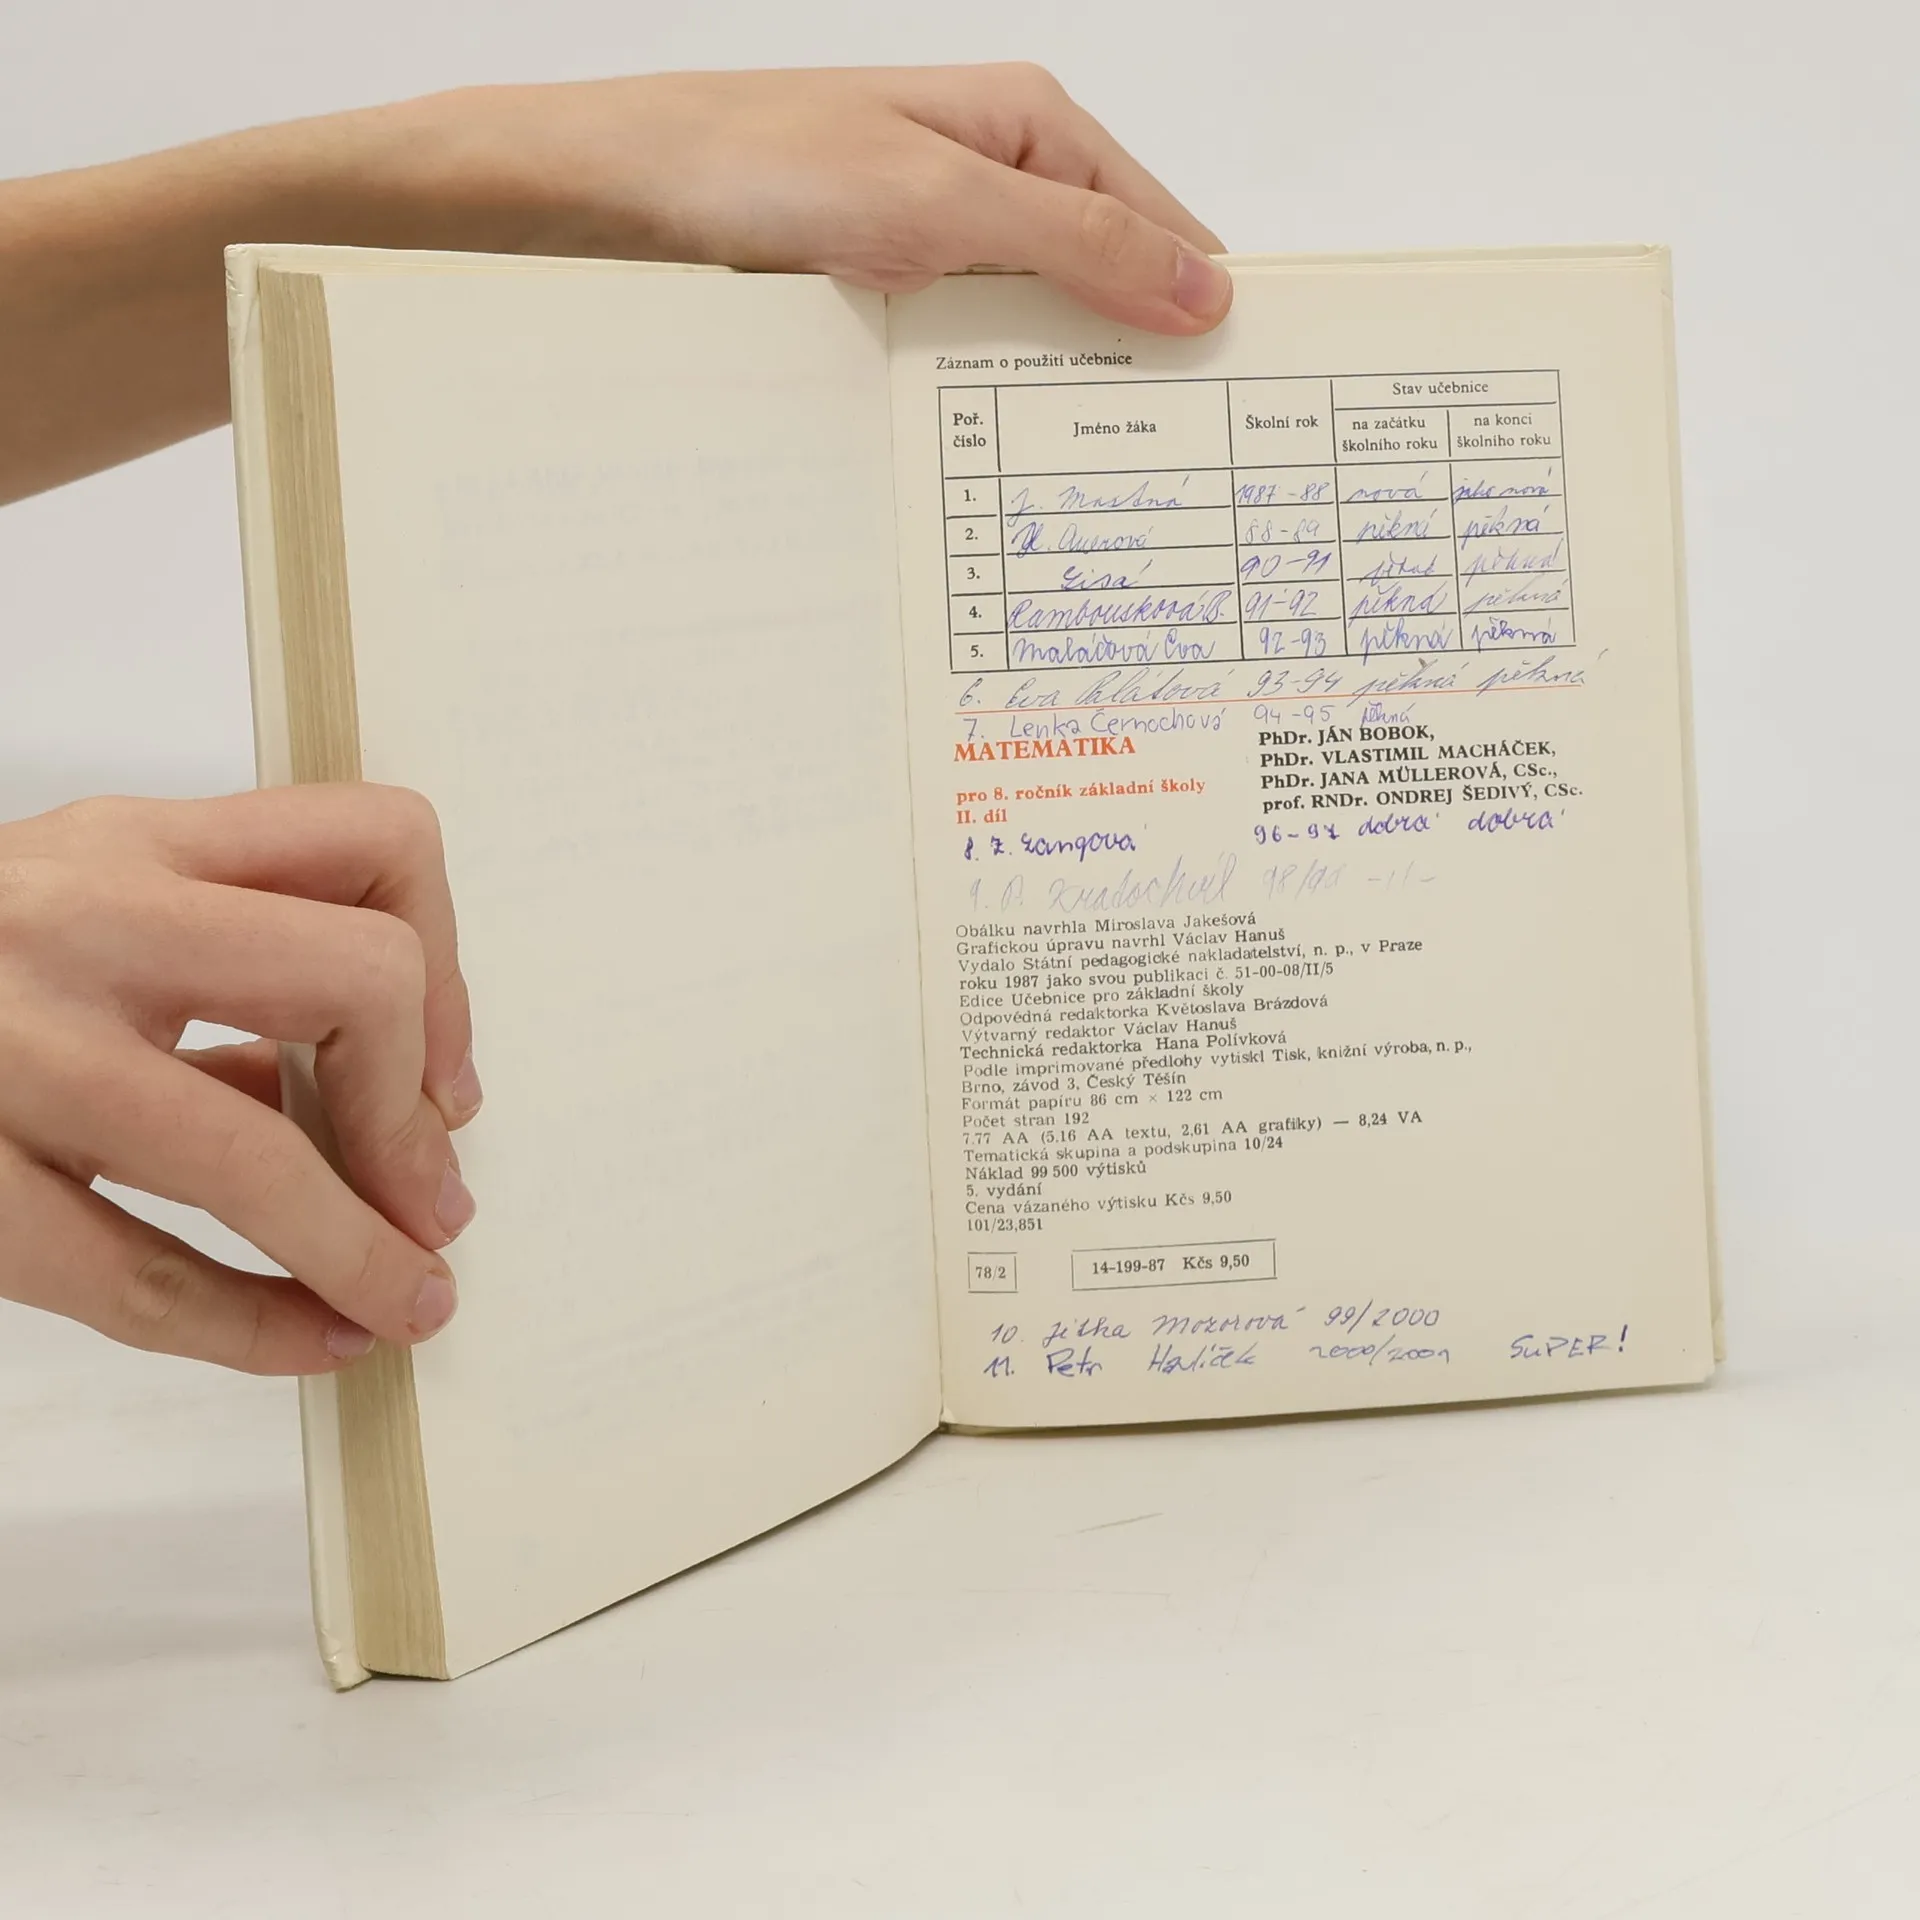 Záznam o použití učebnice
Poř. číslo
Jméno žáka
Školní rok
Stav učebnice
na začátku školního roku
na konci školního roku
1. J. Mastná 1987-88 nová jako nová
2. H. Auerová 88-89 pěkná pěkná
3. Lisá 90-91 pěkná pěkná
4. Rambousková B. 91-92 pěkná pěkná
5. Maláčová Eva 92-93 pěkná pěkná
6. Eva Palátová 93-94 pěkná pěkná
7. Lenka Černochová 94-95 pěkná
MATEMATIKA
pro 8. ročník základní školy
II. díl
PhDr. JÁN BOBOK,
PhDr. VLASTIMIL MACHÁČEK,
PhDr. JANA MÜLLEROVÁ, CSc.,
prof. RNDr. ONDREJ ŠEDIVÝ, CSc.
8. Z. Langová 96-97 dobrá dobrá
9. P. Kratochvíl 98/99 -11-
Obálku navrhla Miroslava Jakešová
Grafickou úpravu navrhl Václav Hanuš
Vydalo Státní pedagogické nakladatelství, n. p., v Praze
roku 1987 jako svou publikaci č. 51-00-08/II/5
Edice Učebnice pro základní školy
Odpovědná redaktorka Květoslava Brázdová
Výtvarný redaktor Václav Hanuš
Technická redaktorka Hana Polívková
Podle imprimované předlohy vytiskl Tisk, knižní výroba, n. p.,
Brno, závod 3, Český Těšín
Formát papíru 86 cm × 122 cm
Počet stran 192
7.77 AA (5.16 AA textu, 2,61 AA grafiky) — 8,24 VA
Tematická skupina a podskupina 10/24
Náklad 99 500 výtisků
5. vydání
Cena vázaného výtisku Kčs 9,50
101/23,851
78/2
14-199-87 Kčs 9,50
10. Jitka Mozorová 99/2000
11. Petr Havlíček 2000/2001 SUPER!